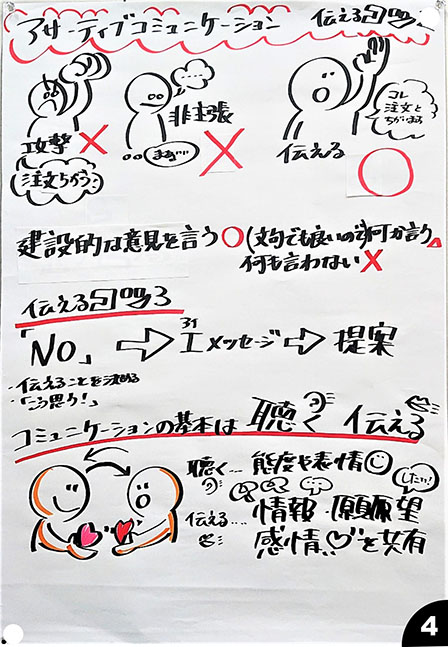 アサーティブコミュニケーション 伝えるコツ
攻撃 ×
注文ちがう!
非主張 ×
まぁ…
伝える ○
コレ
注文と
ちがいます
建設的な意見を言う ○ (文句でも良いので何か言う △
何も言わない ×
伝えるコツ 3
「NO」 ⇨ I メッセージ ⇨ 提案
アイ
・伝えることを決める
・「こう思う!」
コミュニケーションの基本は 聴く 伝える
聴く… 態度や表情
したい!
伝える… 情報・願望
感情 を共有
4